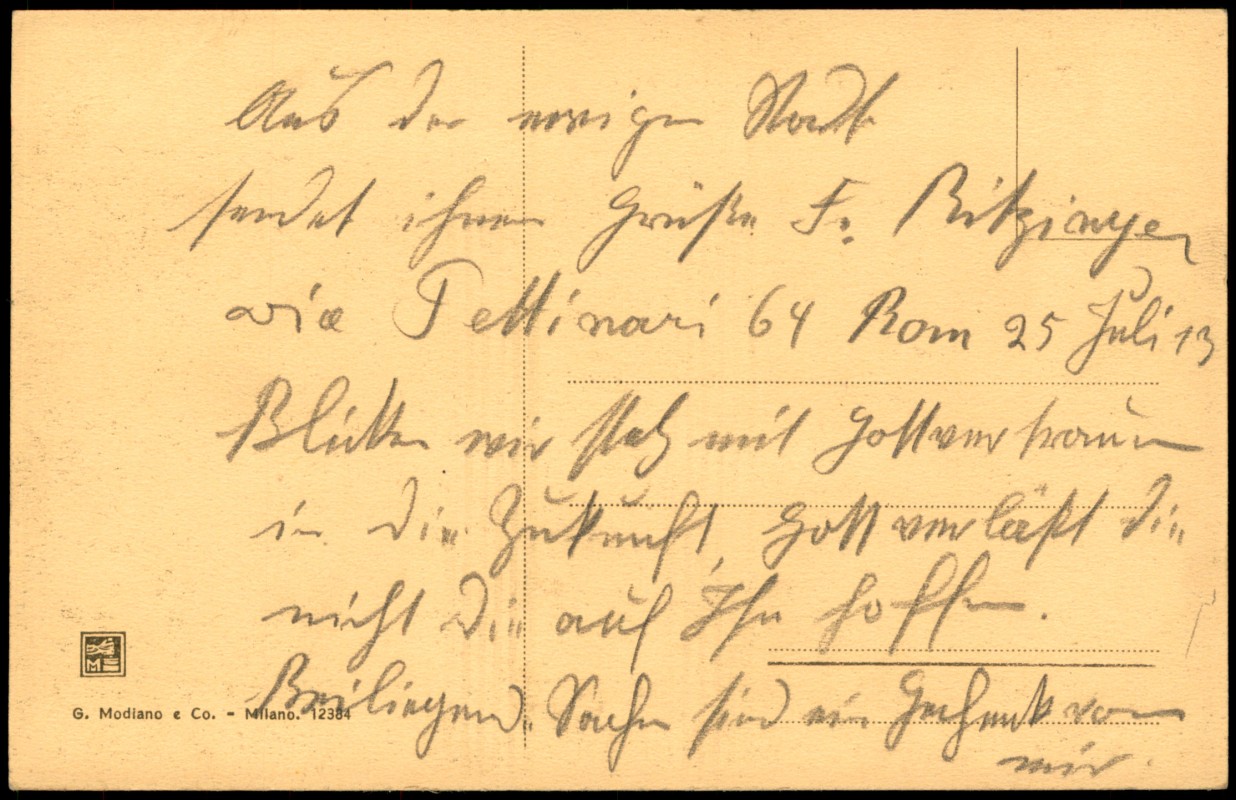 Aus der ewigen Stadt
sendet ihnen Grüße Fr. Ritzinger
via Pettinari 64 Rom 25 Juli 13
Blicken wir stets mit Gottvertrauen
in die Zukunft, Gott verläßt die
nicht die auf Ihn hoffen.
Beiliegend. Sachen sind ein Geschenk von
mir.
M
G. Modiano e Co. - Milano. 12384